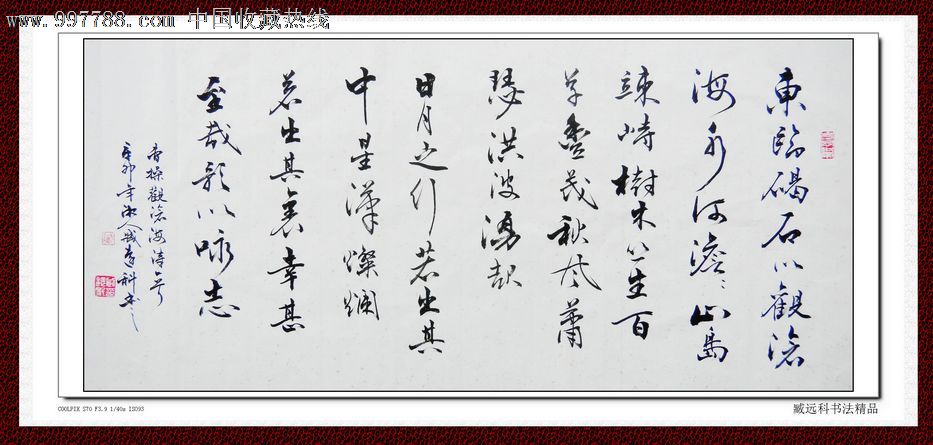 www.997788.com 中国收藏热线
東臨碣石以觀滄
海水何澹〻山島
竦峙樹木丛生百
草豐茂秋風蕭
瑟洪波湧起
日月之行若出其
中星漢燦爛
若出其裏幸甚
至哉歌以咏志
曹操觀滄海詩一首
辛卯年湘人臧遠科書
COOLPIX S70 F3.9 1/40s ISO93
臧远科书法精品